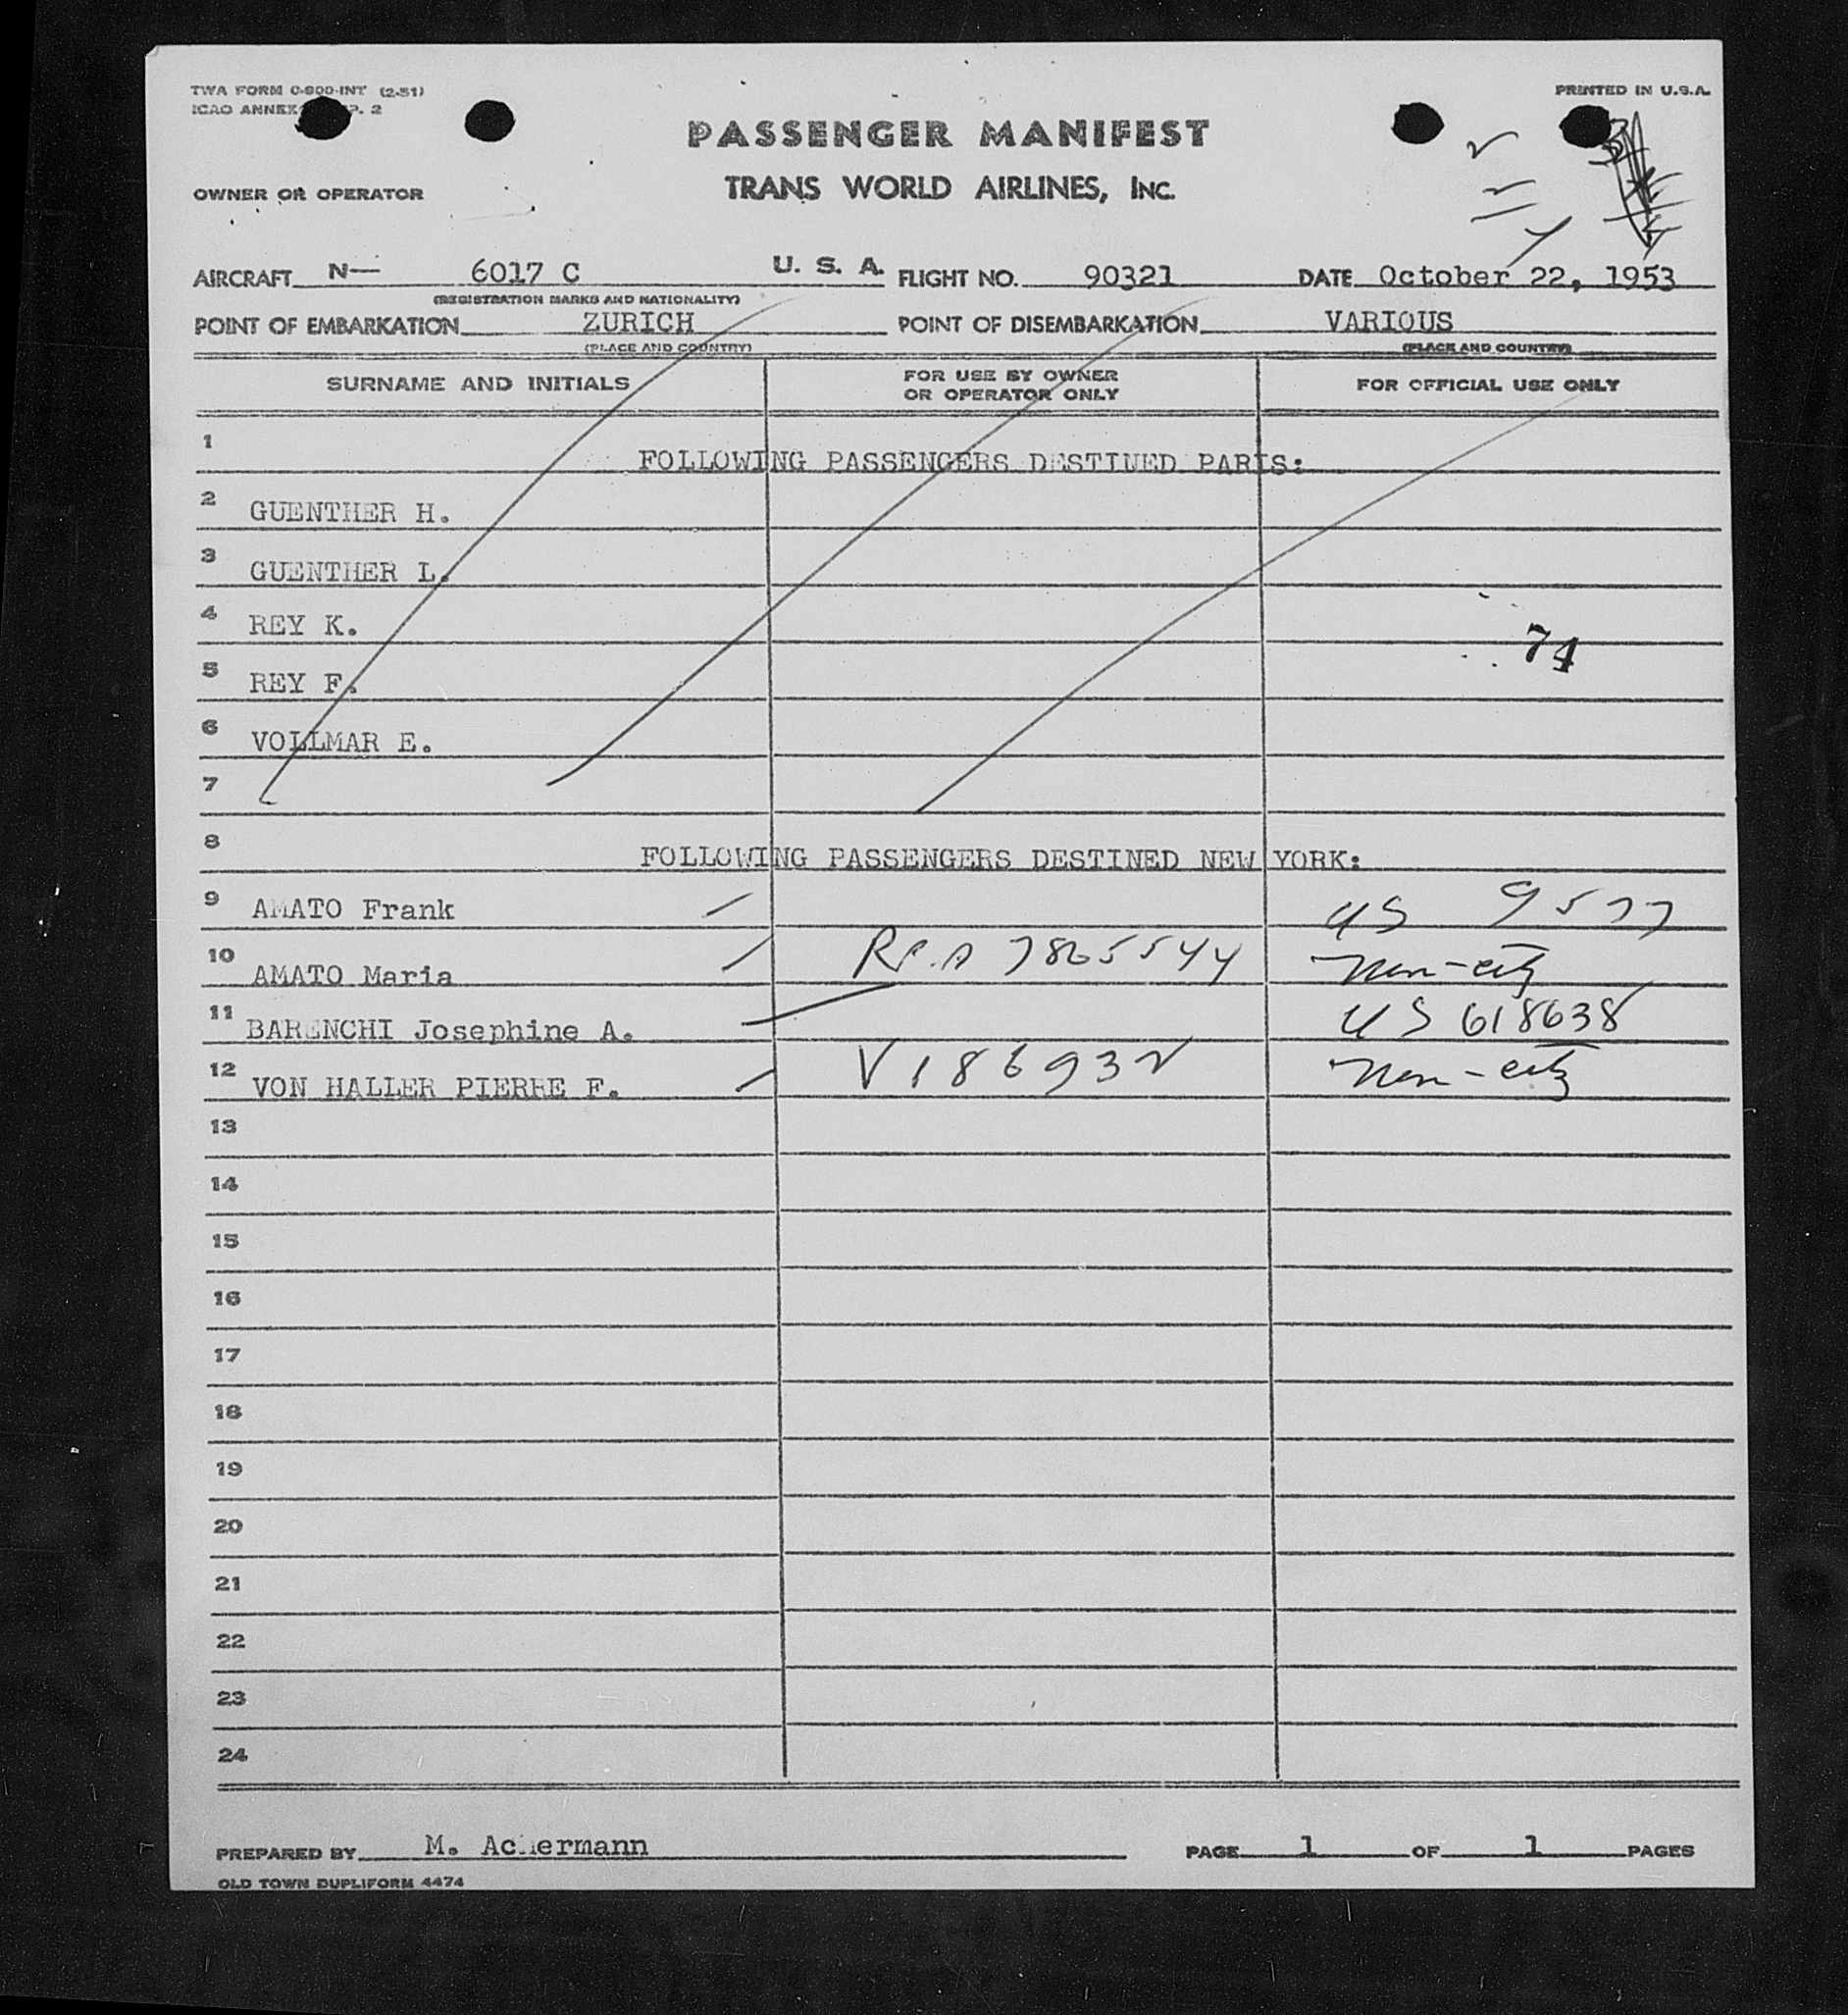 TWA FORM O-800-INT (2-51)
PRINTED IN U.S.A.
ICAO ANNEX P. 2
PASSENGER MANIFEST
OWNER OR OPERATOR
TRANS WORLD AIRLINES, INC.
AIRCRAFT N— 6017 C U. S. A. FLIGHT NO. 90321 DATE October 22, 1953
(REGISTRATION MARKS AND NATIONALITY)
POINT OF EMBARKATION ZURICH POINT OF DISEMBARKATION VARIOUS
(PLACE AND COUNTRY) (PLACE AND COUNTRY)
SURNAME AND INITIALS FOR USE BY OWNER OR OPERATOR ONLY FOR OFFICIAL USE ONLY
1 FOLLOWING PASSENGERS DESTINED PARIS:
2 GUENTHER H.
3 GUENTHER L.
4 REY K.
74
5 REY F.
6 VOLLMAR E.
7
8 FOLLOWING PASSENGERS DESTINED NEW YORK:
9 AMATO Frank US 9577
10 AMATO Maria 7865544 Non-
11 BARENCHI Josephine A. US 618638
12 VON HALLER PIERRE F. V 186932 Non-
13
14
15
16
17
18
19
20
21
22
23
24
PREPARED BY M. Ackermann PAGE 1 OF 1 PAGES
OLD TOWN DUPLIFORM 4474